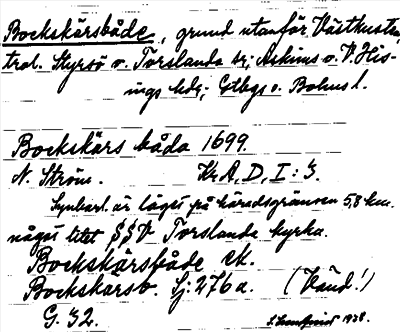 Bockskärsbåde, grund utanför Västkusten,
trol. Styrsö o. Torslanda sr; Askims o. V. His-
ings hdr; Gtbgs o. Bohusl.
Bockskärs båda 1699.
N. Ström. Kr.A, D, I: 3.
Synbarl. är läget på häradsgränsen 5,8 km.
något litet SSV Torslanda kyrka.
Bockskärsbåde ek.
Bockskärsb. Gj: 276 a. (Vänd!)
G. 32. 1938.